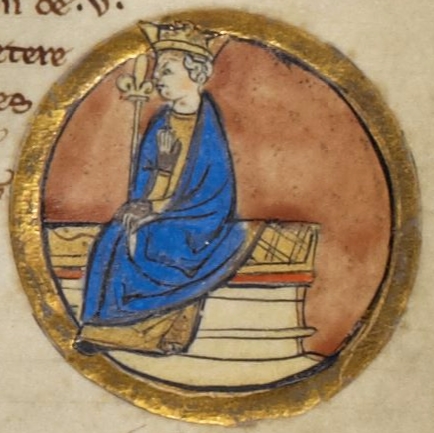 n de . v .
etere
es